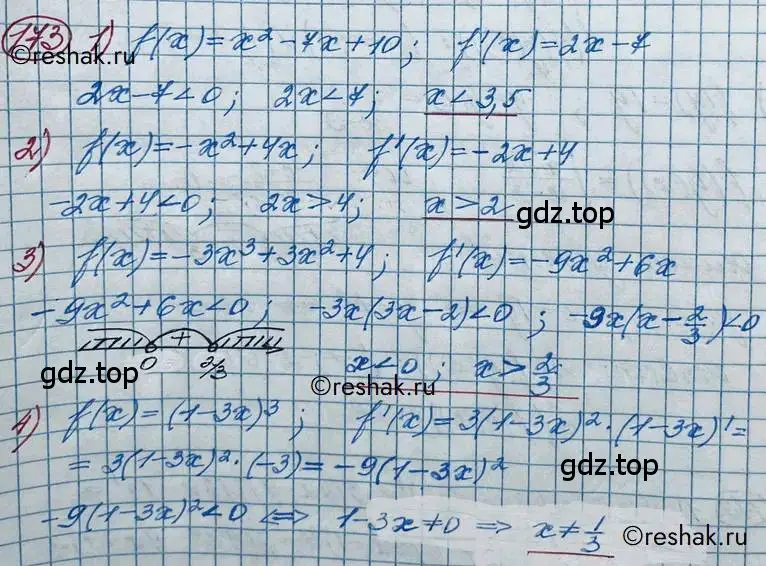 173 1) f(x)=x²-7x+10; f'(x)=2x-7
©reshak.ru
2x-7<0; 2x<7; x<3,5
©reshak.ru
2) f(x)=-x²+4x; f'(x)=-2x+4
-2x+4<0; 2x>4; x>2
gdz.top
3) f(x)=-3x³+3x²+4; f'(x)=-9x²+6x
-9x²+6x<0; -3x(3x-2)<0; -9x(x-2/3)<0
+
0 2/3
x<0; x>2/3
gdz.top
©reshak.ru
4) f(x)=(1-3x)³; f'(x)=3(1-3x)²·(1-3x)'=
=3(1-3x)²·(-3)=-9(1-3x)²
gdz.top
-9(1-3x)²<0 ⟺ 1-3x≠0 ⟹ x≠1/3
©reshak.ru